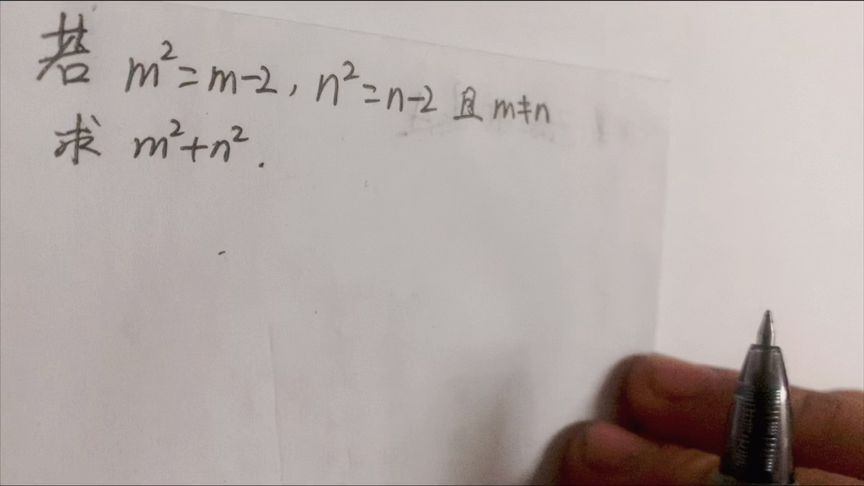 若 m²=m-2，n²=n-2 且 m≠n
求 m²+n².